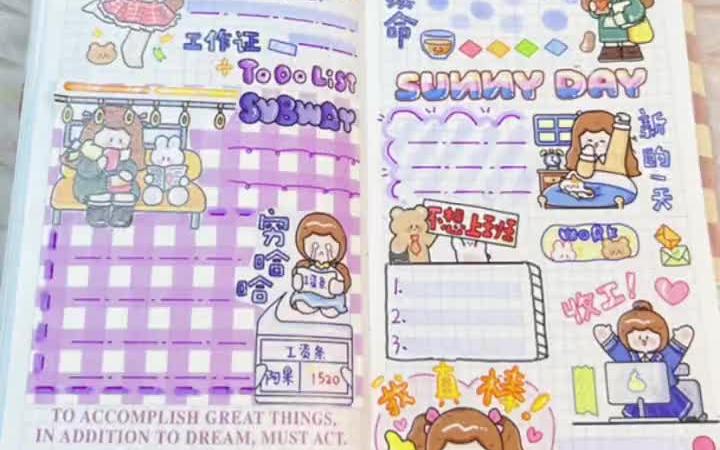 工作证
To Do List
SUBWAY
穷哈哈
工资条
工资条
阿果 1520
TO ACCOMPLISH GREAT THINGS,
IN ADDITION TO DREAM, MUST ACT.
命
SUNNY DAY
新的一天
不想上班
WORK
1.
2.
3.
收工!
我真棒!